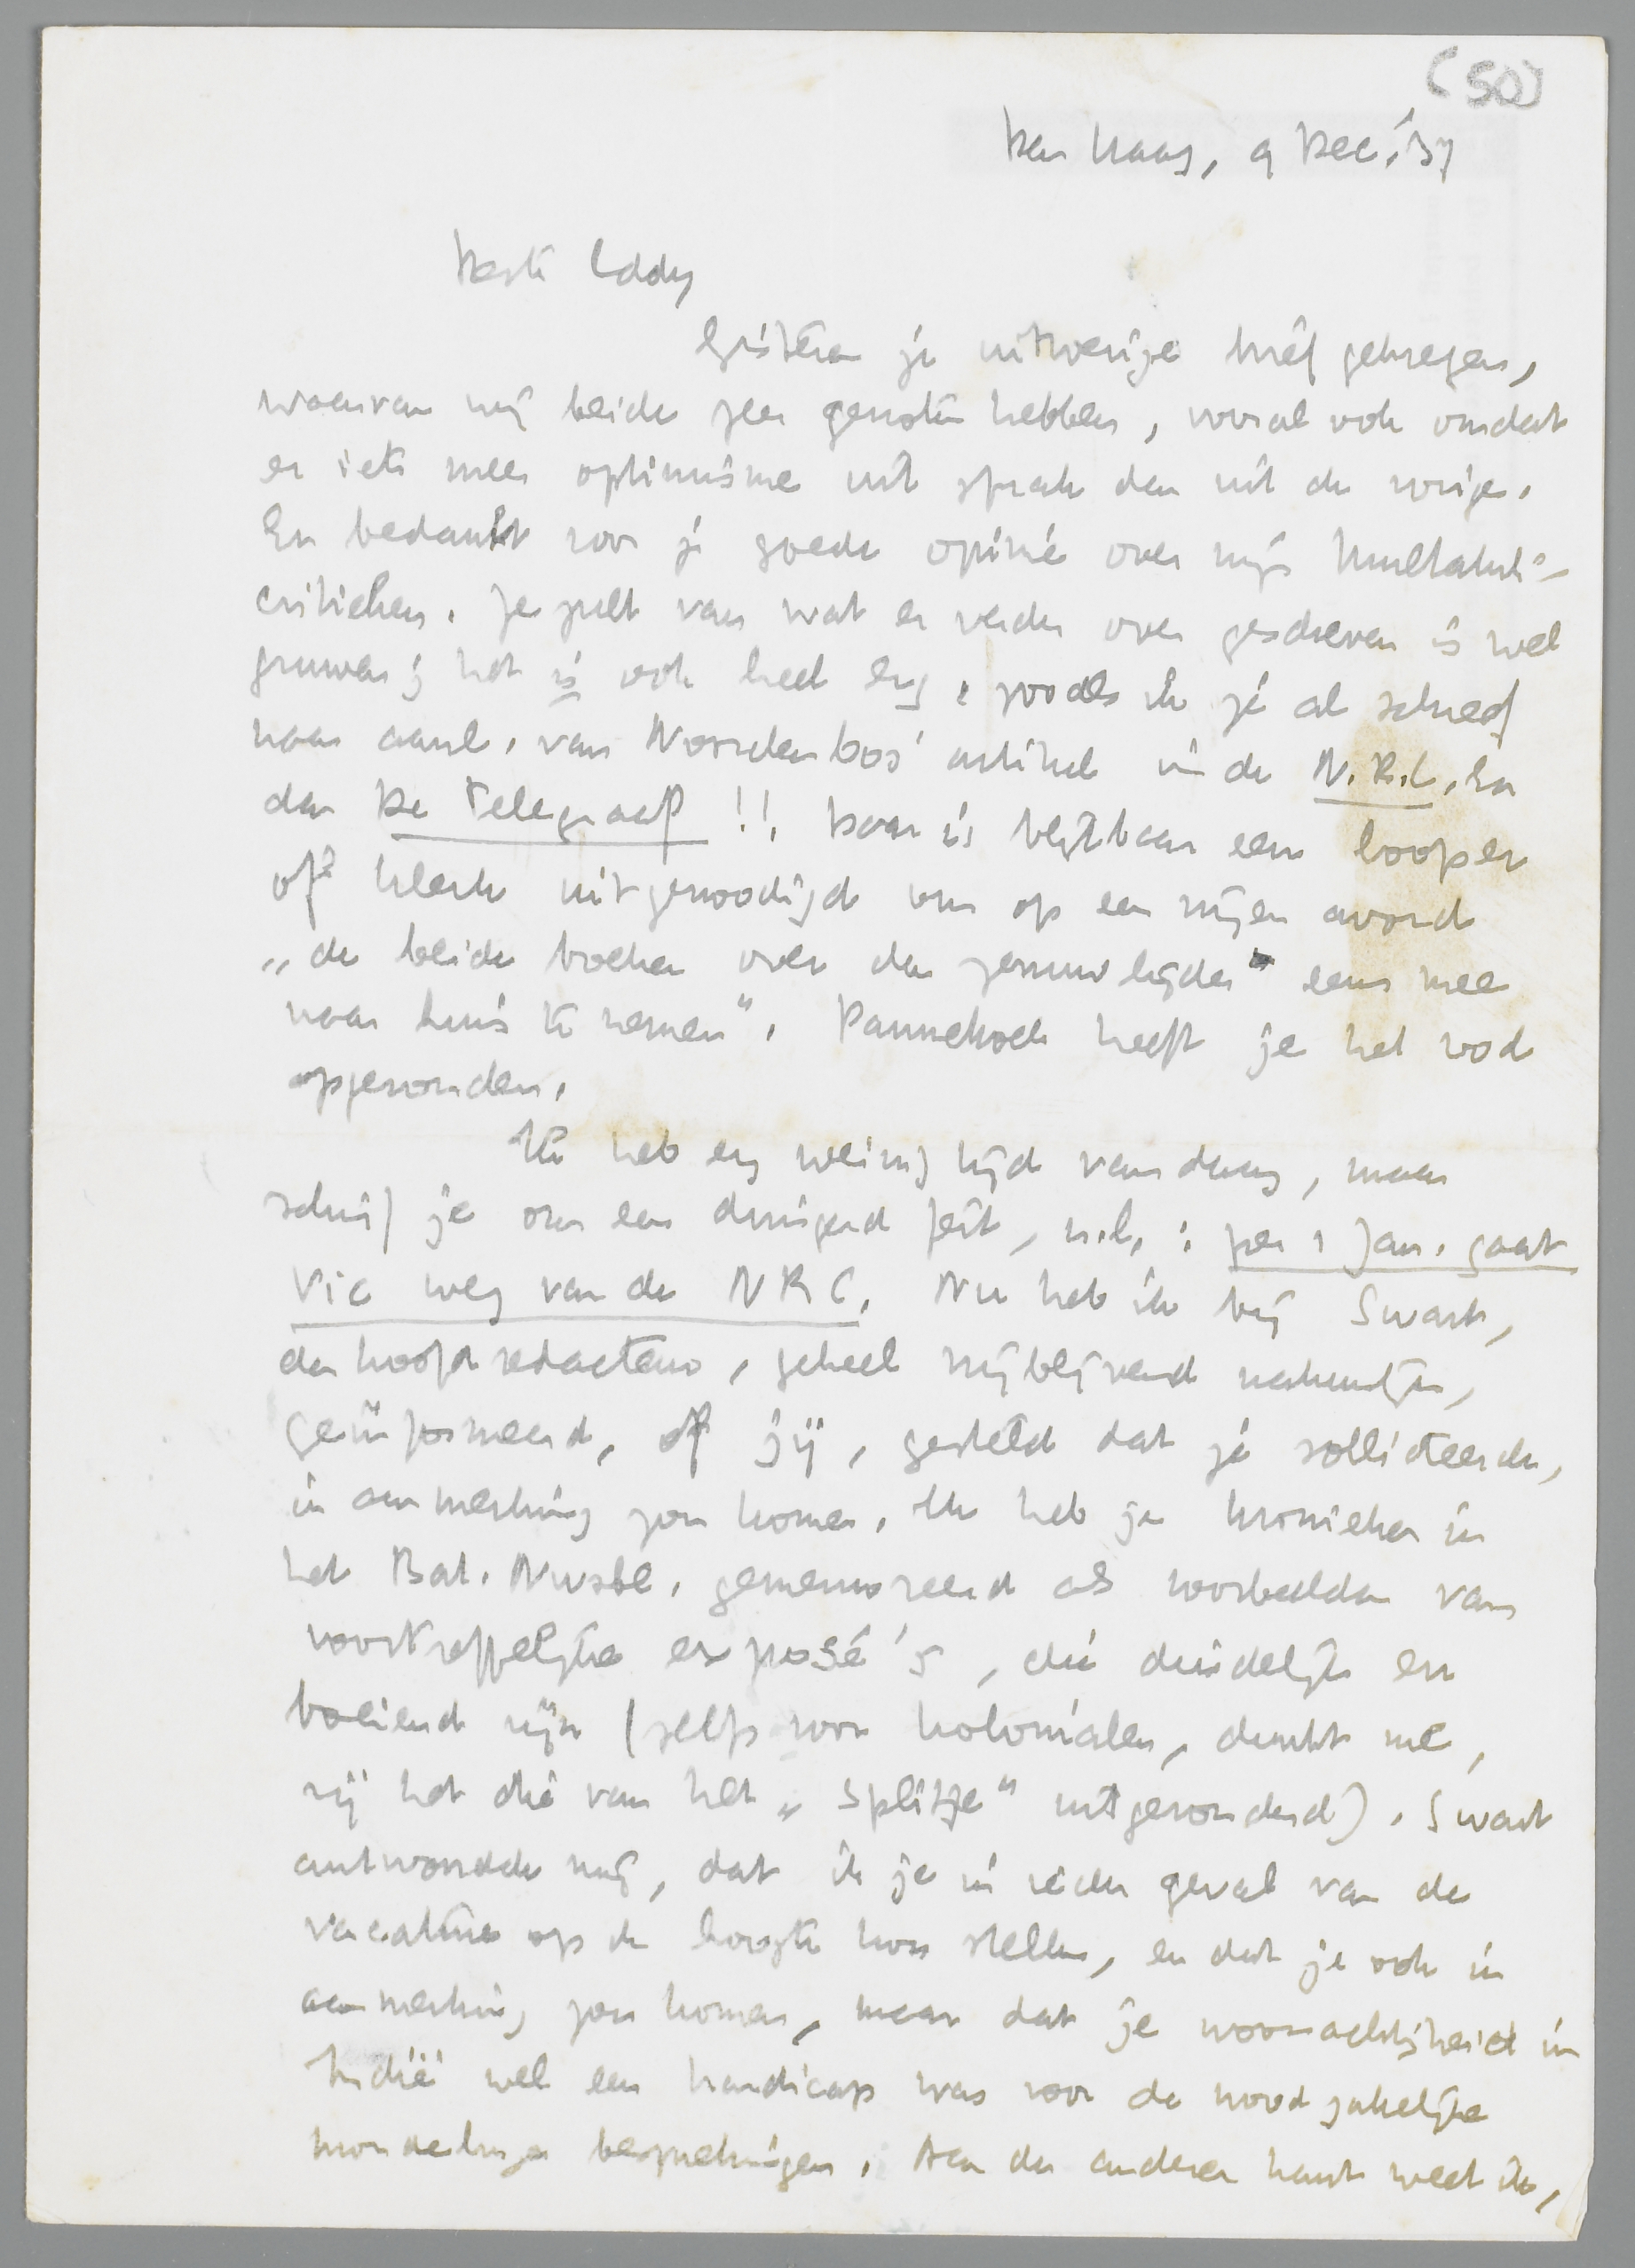 (50)
Den Haag, 9 Dec. '37
Beste Eddy
Gisteren je uitvoerige brief gekregen,
waarvan wij beide zeer genoten hebben, vooral ook omdat
er iets meer optimisme uit sprak dan uit de vorige.
En bedankt voor je goede opinie over mijn Multatuli-
critieken. Je zult van wat er verder over geschreven is wel
gruwen; het is ook heel erg, zooals ik je al schreef
naar aanl. van Noordenbos' artikel in de N.R.C. En
dan De Telegraaf!! Daar is blijkbaar een looper
of klerk uitgenoodigd om op een vrijen avond
„de beide boeken over den zenuwlijder" eens mee
naar huis te nemen". Pannekoek heeft je het vod
opgezonden.
Ik heb erg weinig tijd vandaag, maar
schrijf je om een dringend feit, n.l.: per 1 Jan. gaat
Vic weg van de NRC. Nu heb ik bij Swart,
den hoofdredacteur, geheel vrijblijvend natuurlijk,
geïnformeerd, of jij, gesteld dat je solliciteerde,
in aanmerking zou komen. Ik heb je kronieken in
het Bat. Nwsbl. gememoreerd als voorbeelden van
voortreffelijke exposé's, die duidelijk en
boeiend zijn (zelfs voor kolonialen, dunkt me,
zij het die van het „Splitje" uitgezonderd). Swart
antwoordde mij, dat ik je in ieder geval van de
vacature op de hoogte kon stellen, en dat je ook in
aanmerking zou komen, maar dat je woonachtigheid in
Indië wel een handicap was voor de noodzakelijke
mondelinge besprekingen. Aan den anderen kant weet ik,